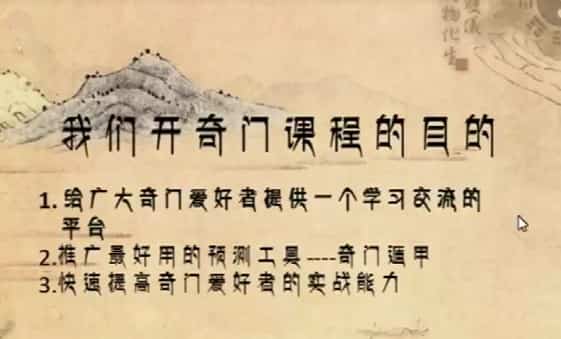 我们开奇门课程的目的
1. 给广大奇门爱好者提供一个学习交流的
平台
2.推广最好用的预测工具----奇门遁甲
3.快速提高奇门爱好者的实战能力
物化生